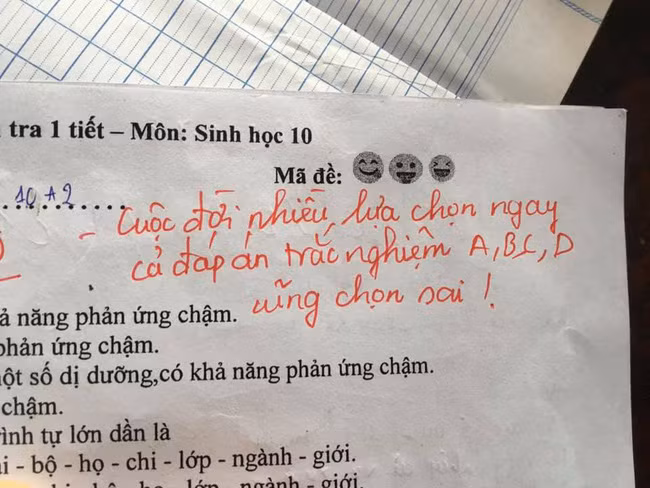 tra 1 tiết – Môn: Sinh học 10
Mã đề:
10 A 2
- Cuộc đời nhiều lựa chọn ngay
cả đáp án trắc nghiệm A, B, C, D
cũng chọn sai !
ả năng phản ứng chậm.
phản ứng chậm.
một số dị dưỡng,có khả năng phản ứng chậm.
chậm.
rình tự lớn dần là
i - bộ - họ - chi - lớp - ngành - giới.
lớp - ngành - giới.